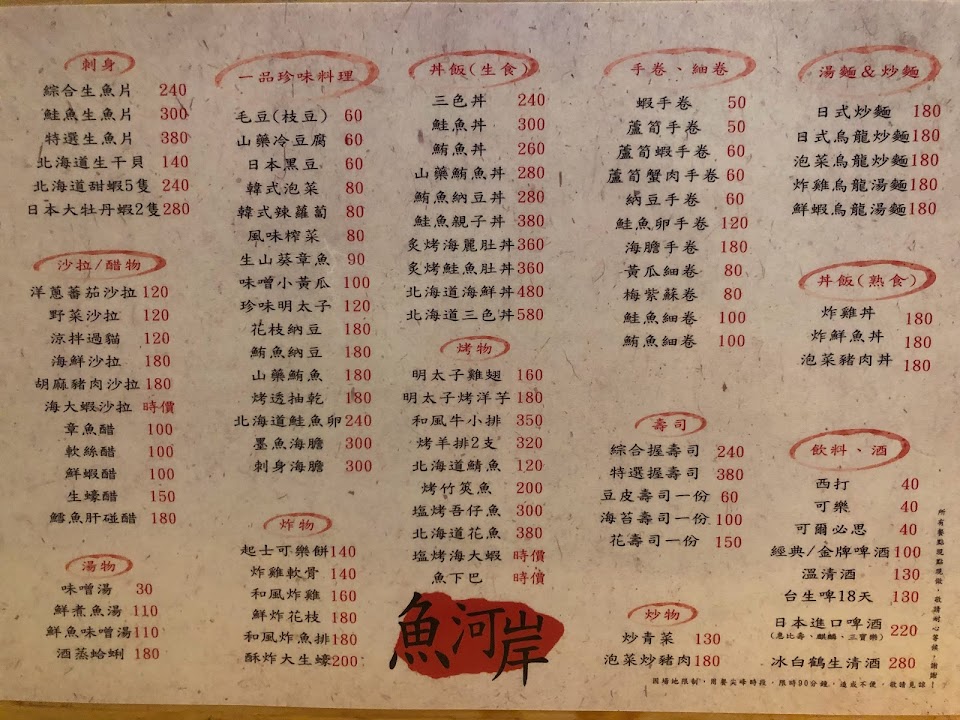 刺身
綜合生魚片 240
鮭魚生魚片 300
特選生魚片 380
北海道生干貝 140
北海道甜蝦5隻 240
日本大牡丹蝦2隻 280
沙拉/醋物
洋蔥蕃茄沙拉 120
野菜沙拉 120
涼拌過貓 120
海鮮沙拉 180
胡麻豬肉沙拉 180
海大蝦沙拉 時價
章魚醋 100
軟絲醋 100
鮮蝦醋 100
生蠔醋 150
鱈魚肝碰醋 180
湯物
味噌湯 30
鮮煮魚湯 110
鮮魚味噌湯 110
酒蒸蛤蜊 180
一品珍味料理
毛豆(枝豆) 60
山藥冷豆腐 60
日本黑豆 60
韓式泡菜 80
韓式辣蘿蔔 80
風味榨菜 80
生山葵章魚 90
味噌小黃瓜 100
珍味明太子 120
花枝納豆 180
鮪魚納豆 180
山藥鮪魚 180
烤透抽乾 180
北海道鮭魚卵 240
墨魚海膽 300
刺身海膽 300
炸物
起士可樂餅 140
炸雞軟骨 140
和風炸雞 160
鮮炸花枝 180
和風炸魚排 180
酥炸大生蠔 200
丼飯(生食)
三色丼 240
鮭魚丼 300
鮪魚丼 260
山藥鮪魚丼 280
鮪魚納豆丼 280
鮭魚親子丼 380
炙烤海鱺肚丼 360
炙烤鮭魚肚丼 360
北海道海鮮丼 480
北海道三色丼 580
烤物
明太子雞翅 160
明太子烤洋芋 180
和風牛小排 350
烤羊排2支 320
北海道鯖魚 120
烤竹筴魚 200
塩烤吾仔魚 300
北海道花魚 380
塩烤海大蝦 時價
魚下巴 時價
魚河岸
手卷、細卷
蝦手卷 50
蘆筍手卷 50
蘆筍蝦手卷 60
蘆筍蟹肉手卷 60
納豆手卷 60
鮭魚卵手卷 120
海膽手卷 180
黃瓜細卷 80
梅紫蘇細卷 80
鮭魚細卷 100
鮪魚細卷 100
壽司
綜合握壽司 240
特選握壽司 380
豆皮壽司一份 60
海苔壽司一份 100
花壽司一份 150
炒物
炒青菜 130
泡菜炒豬肉 180
湯麵&炒麵
日式炒麵 180
日式烏龍炒麵 180
泡菜烏龍炒麵 180
炸雞烏龍湯麵 180
鮮蝦烏龍湯麵 180
丼飯(熟食)
炸雞丼 180
炸鮮魚丼 180
泡菜豬肉丼 180
飲料、酒
西打 40
可樂 40
可爾必思 40
經典/金牌啤酒 100
溫清酒 130
台生啤18天 130
日本進口啤酒 220
(惠比壽、麒麟、三寶樂)
冰白鶴生清酒 280
所有餐點現點現做,敬請耐心等候,謝謝!
因場地限制,用餐尖峰時段,限時90分鐘,造成不便,敬請見諒